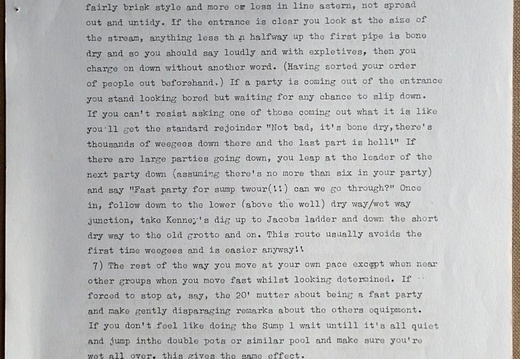 fairly brisk style and more or loss in line astern, not spread
out and untidy. If the entrance is clear you look at the size of
the stream, anything less than halfway up the first pipe is bone
dry and so you should say loudly and with expletives, then you
charge on down without another word. (Having sorted your order
of people out beforehand.) If a party is coming out of the entrance
you stand looking bored but waiting for any chance to slip down.
If you can't resist asking one of those coming out what it is like
you'll get the standard rejoinder "Not bad, it's bone dry,there's
thousands of weegees down there and the last part is hell!" If
there are large parties going down, you leap at the leader of the
next party down (assuming there's no more than six in your party)
and say "Fast party for sump twour(!!) can we go through?" Once
in, follow down to the lower (above the well) dry way/wet way
junction, take Kenney's dig up to Jacobs ladder and down the short
dry way to the old grotto and on. This route usually avoids the
first time weegees and is easier anyway!!
7) The rest of the way you move at your own pace except when near
other groups when you move fast whilst looking determined. If
forced to stop at, say, the 20' mutter about being a fast party
and make gently disparaging remarks about the others equipment.
If you don't feel like doing the Sump 1 wait untill it's all quiet
and jump inthe double pots or similar pool and make sure you're
wet all over, this gives the same effect.